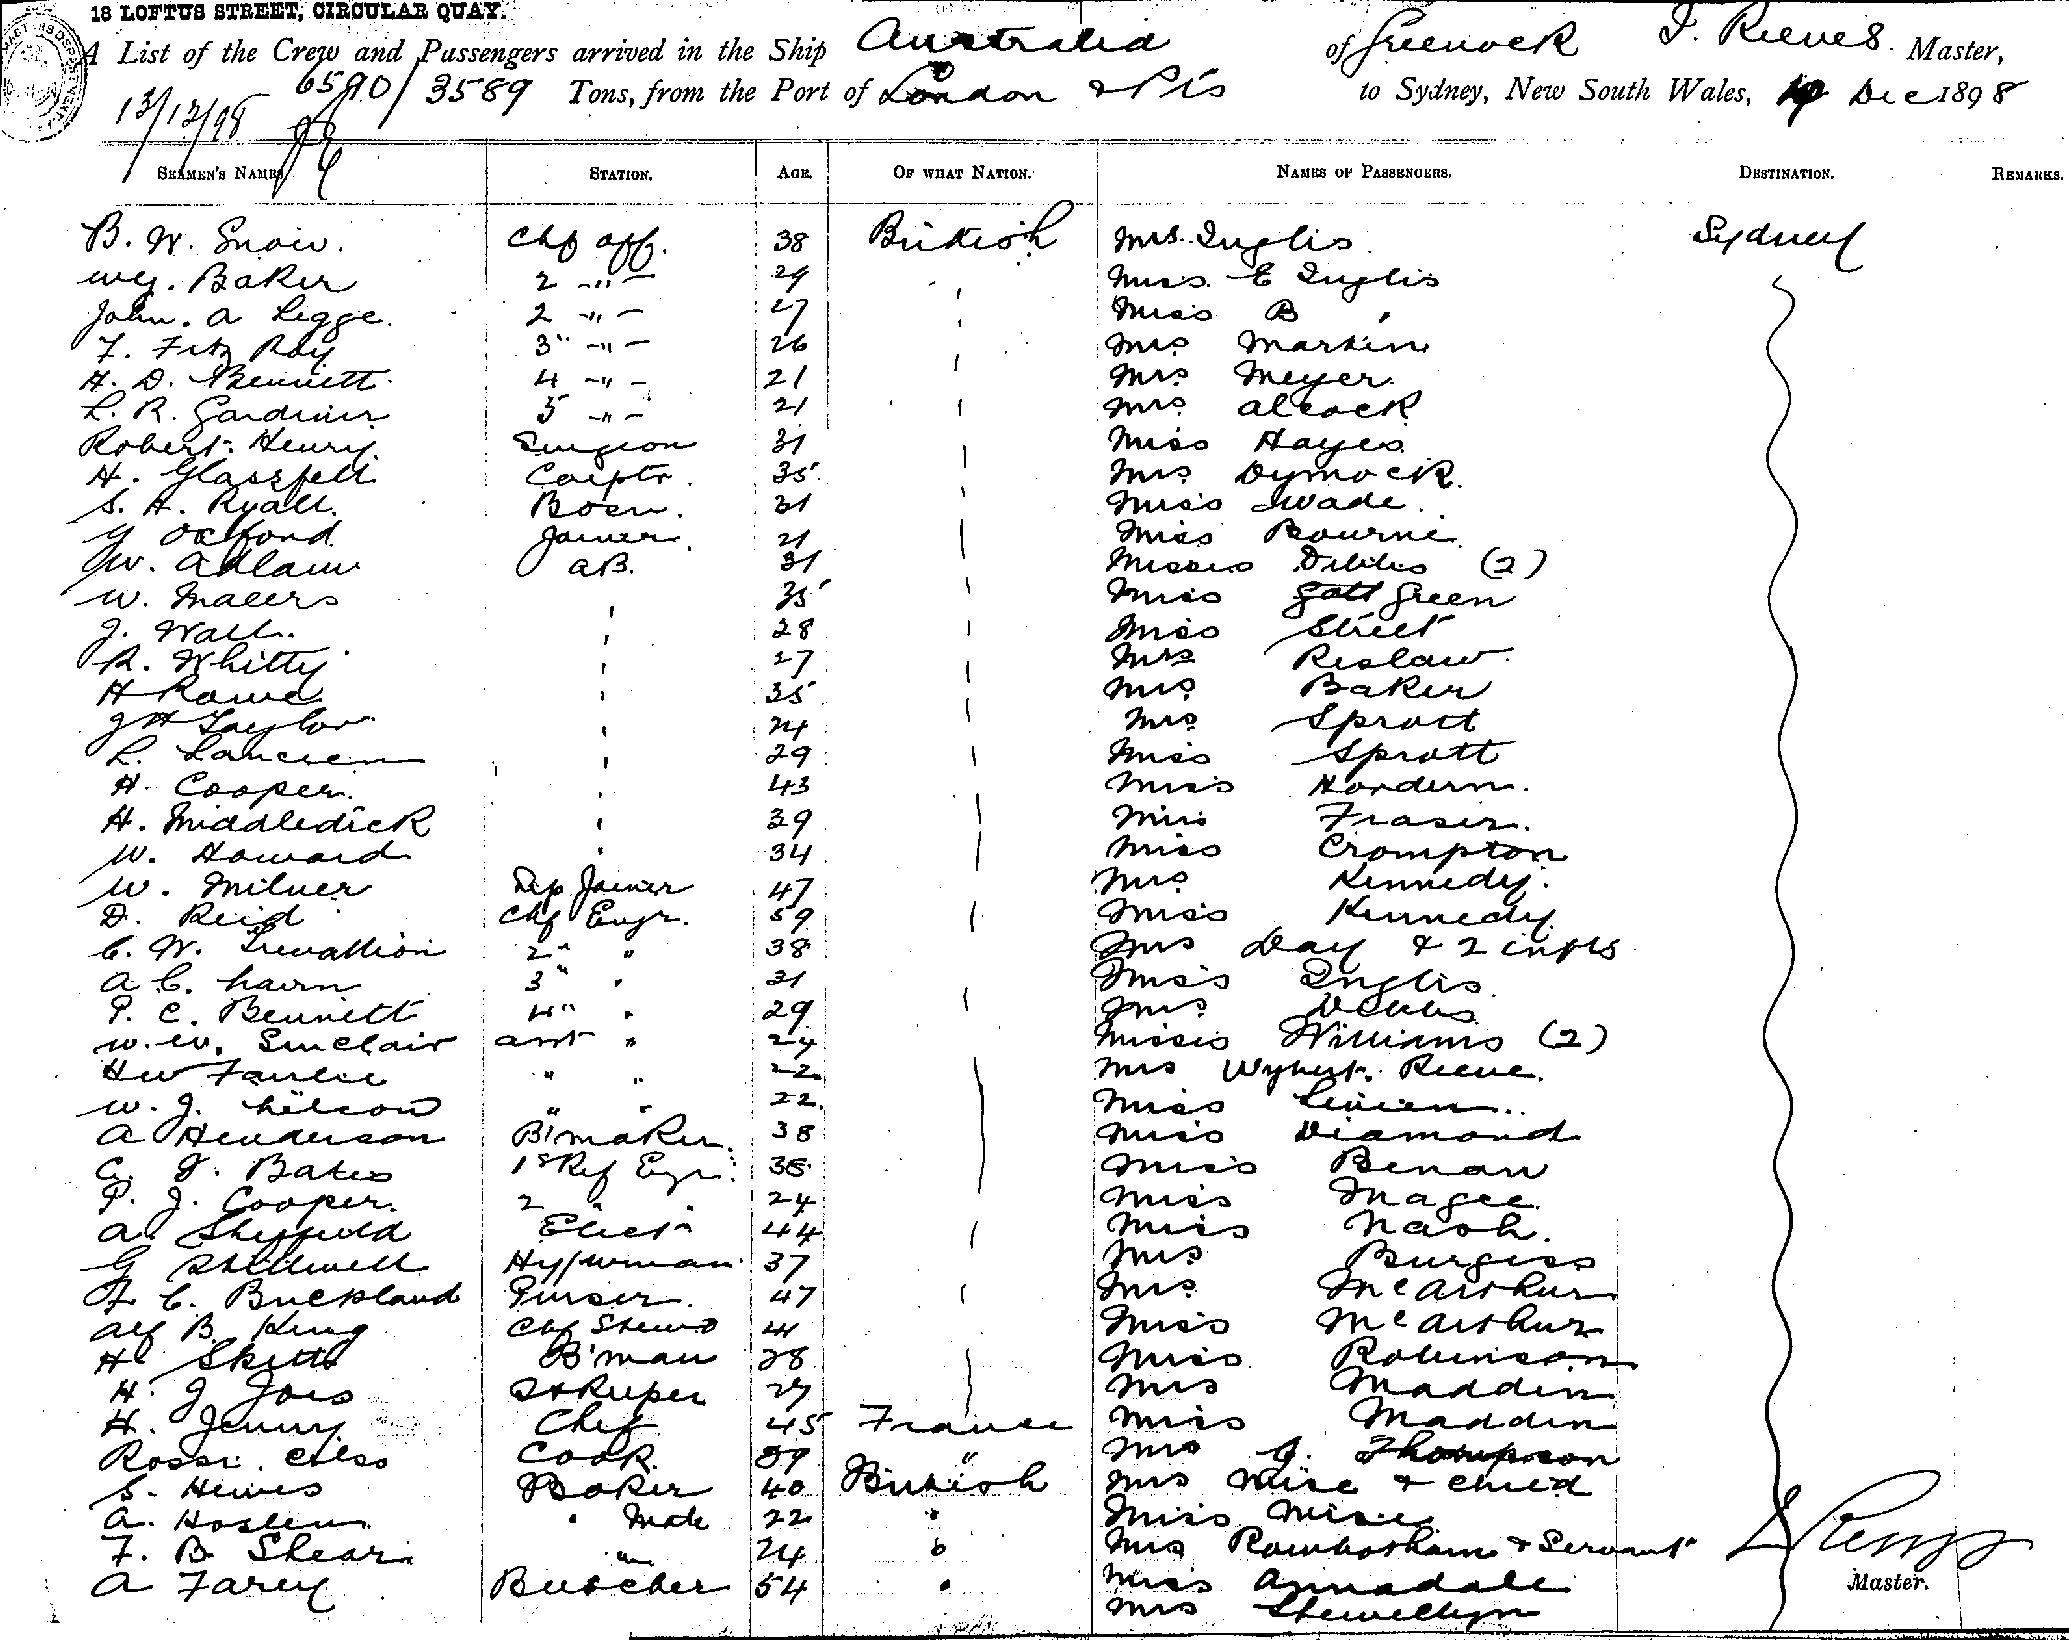 18 LOFTUS STREET, CIRCULAR QUAY.
A List of the Crew and Passengers arrived in the Ship Australia of Greenock J. Reeves. Master,
6590/3589 Tons, from the Port of London & Pts to Sydney, New South Wales, Dec 1898
13/12/98
SEAMEN'S NAMES. STATION. AGE. OF WHAT NATION. NAMES OF PASSENGERS. DESTINATION. REMARKS.
B. W. Snow. Chf Off. 38 British Mrs. Inglis Sydney
Wg. Baker 2 -"- 29 Miss. E Inglis
John. A Legge. 2 -"- 27 Miss B "
F. Fitz Roy 3" -"- 26 Mrs Martin
H. D. Bennett 4 -"- 21 Mrs Meyer
L. R. Gardiner 5 -"- 21 Mrs Alcock
Robert. Henry. Surgeon 31 Miss Hayes
H. Glasspell Carptr. 35 Mrs Dymock.
S. A. Ryall. Bosn. 31 Miss Wade.
G Oxford Joiner. 21 Miss Bourne
W. Adlam AB. 31 Misses Dibbs (2)
W. Maeers " 35 Miss Green
J. Wall. " 28 Miss Street
R. Whitty " 27 Mrs Reslaw
H Rowe " 35 Mrs Baker
J H Taylor " 24 Mrs Sprott
L. " 29 Miss Sprott
H. Cooper. " 43 Miss Hordern.
H. Middledick " 39 Miss Fraser.
W. Howard " 34 Miss Crompton
W. Milner Dep Joiner 47 Mrs Kennedy.
D. Reid Chf Engr. 59 Miss Kennedy
C. W. Trevallion 2" " 38 Mrs Day & 2 infts
A C. 3" " 31 Miss Inglis
P. C. Bennett 4" " 29 Mrs Dibbs
W. W. Sinclair Asst " 24 Misses Williams (2)
H W " " 22 Mrs Wybert. Reeve.
W. J. " " 22. Miss
A Henderson B'maker. 38 Miss Diamond
C. J. Bates 1st Ref Engr. Miss Benan
P. J. Cooper. 2 " 24 Miss Magee
A. Sheffield Elect" 44 Miss Nash.
G Skillwell 37 Mrs Burgess
F C. Buckland Purser. 47 Mrs McArthur
Alf B. King Chf Stewd 41 Miss McArthur
H. Skitt B'man 28 Miss Robinson
H. J Jois St Keeper 27 Mrs Maddin
H. Jenny Chef 45 France Miss Maddin
Rossi. Celso Cook. 39 " Mrs G. Thompson
S. Hewes Baker 40 British Mrs Wise & child
A. Hosken " Mate 22 " Miss Wise
F. B Shear. " 24 " Mrs Rowbotham & Servant
A Farey Butcher 54 " Miss Annadale
Mrs Llewellyn
Master.